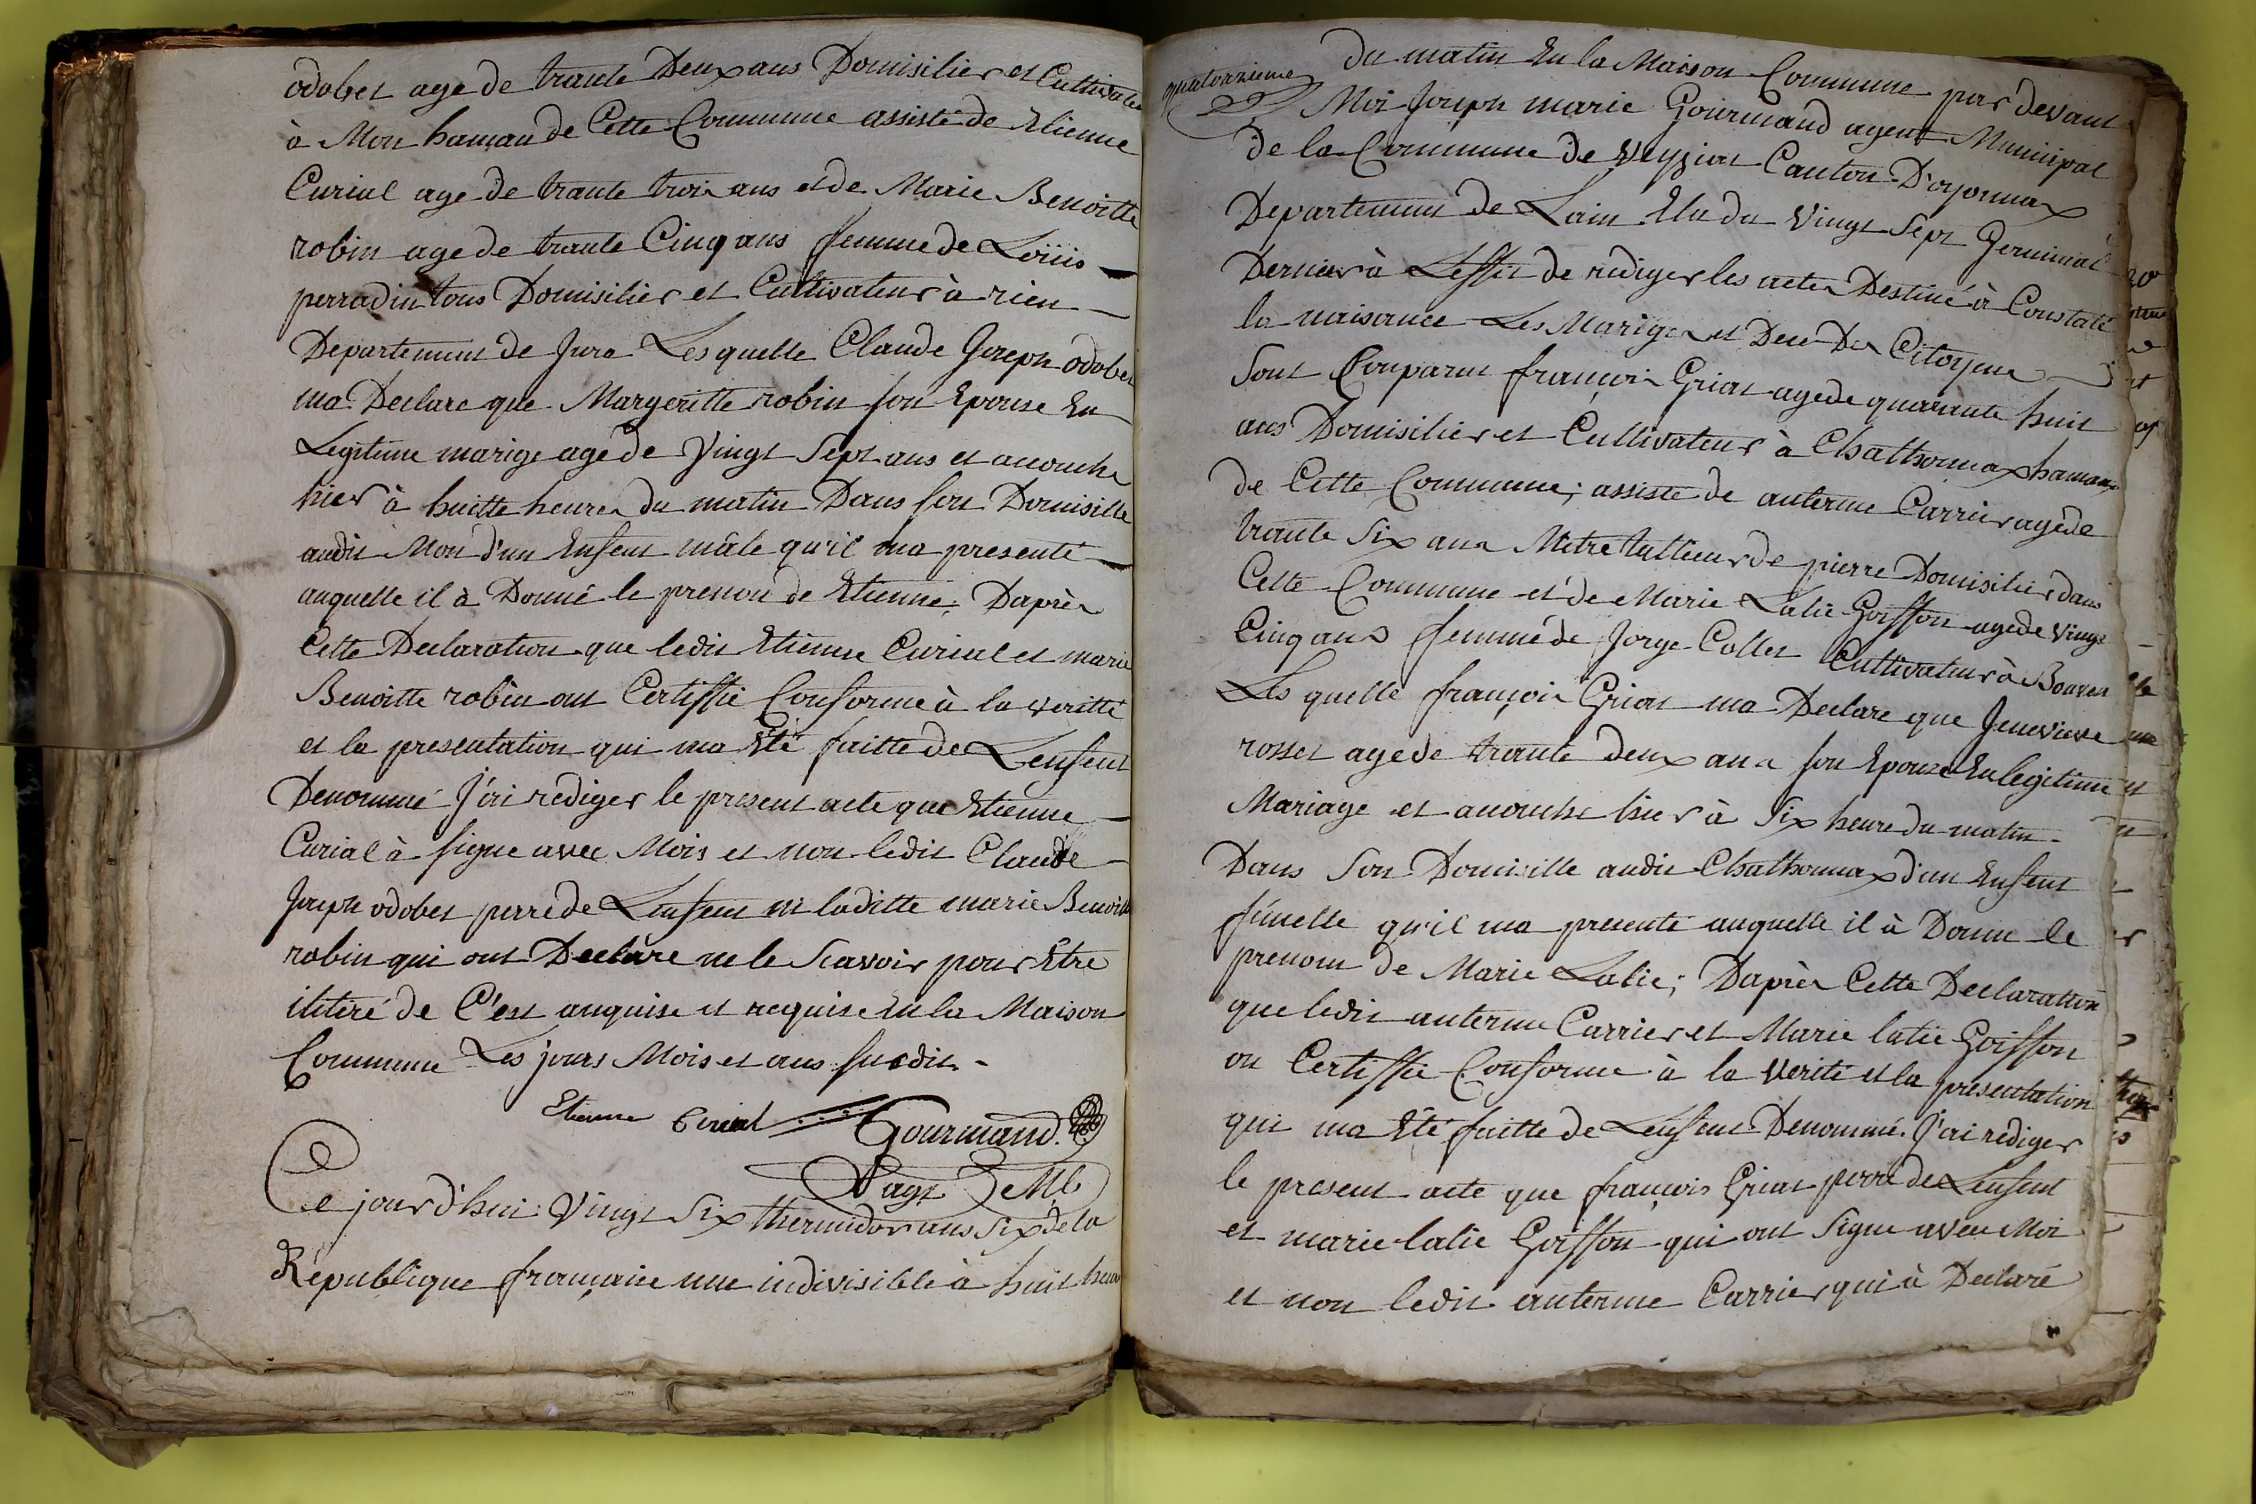 odobet age de trante Deux ans Domisilier et Cultivateur
à Mon hamau de Cette Commune assisté de Etienne
Curial age de trante trois ans et de Marie Benoitte
robin age de trante Cinq ans femme de Loüis
perradin tous Domisilier et Cultivateur à rien
Departement de Jura Lesquelle Claude Joseph odobet
ma Declare que Margeritte robin son Epouse En
Legitime marige age de Vingt Sept ans et acouche
hier à huitte heures du matin Dans son Domisille
audit Mon d'un Enfent mâle qu'il ma presenté
auquelle il à Donné le prenon de Etienne; Daprès
Cette Declaration que ledit Etienne Curial et marie
Benoitte robin ont Certiffie Conforme à la veritté
et la presentation qui ma Eté faitte de Lenfent
Denommé J'ai rediger le present acte que Etienne
Curial à signe avec Mois et non ledit Claude
Joseph odobet perre de Lenfent ni laditte marie Benoitte
robin qui ont Declare ne le Scavoir pour Etre
ititeré de C'est anquise et requise En la Maison
Commune Les jours Mois et ans susdit
Etienne Curial Gourmand
agt
Ce jourd'hui Vingt Six thermidor ans Six de la
République française une indivisible à huit heure
quatorzieme
du matin En la Maison Commune par devant
Moi Joseph marie Gourmand agent Municipal
de la Commune de Veyziat Canton D'oyonnax
Departement de Lain Elu du Vingt Sept Germinal
Dernier à Leffet de rediger les actes Destiné à Constaté
la naisance Les Mariges et Dece Des Citoyens
Sont Comparut françois Griat age de quarante huit
ans Domisilier et Cultivateur à Chathonnax hamau
de Cette Commune; assisté de anterme Carrier age de
trante Six ans Metre tallieur de pierre Domisilier dans
Cette Commune et de Marie Lalie Goiffon age de Vingt
Cinq ans femme de Jorge Collet Cultivateur à Bouvent
Lesquelle françois Griat ma Declare que Jenevieve
rosset age de trante deux ans son Epouze En legitime
Mariage et acouche hier à Six heure du matin
Dans Son Domisille audit Chathonnax d'un Enfent
fémelle qu'il ma presenté auquelle il à Donne le
prenom de Marie Lalie; Daprès Cette Declaration
que ledit anterme Carrier et Marie lalie Goiffon
on Certiffie Conforme à la Verité et la presentation
qui ma Eté faitte de Lenfent Denommé. J'ai rediger
le present acte que françois Griat perre de Lenfent
et marie lalie Goiffon qui ont Signe avec Moi
et non ledit anterme Carrier qui à Declaré